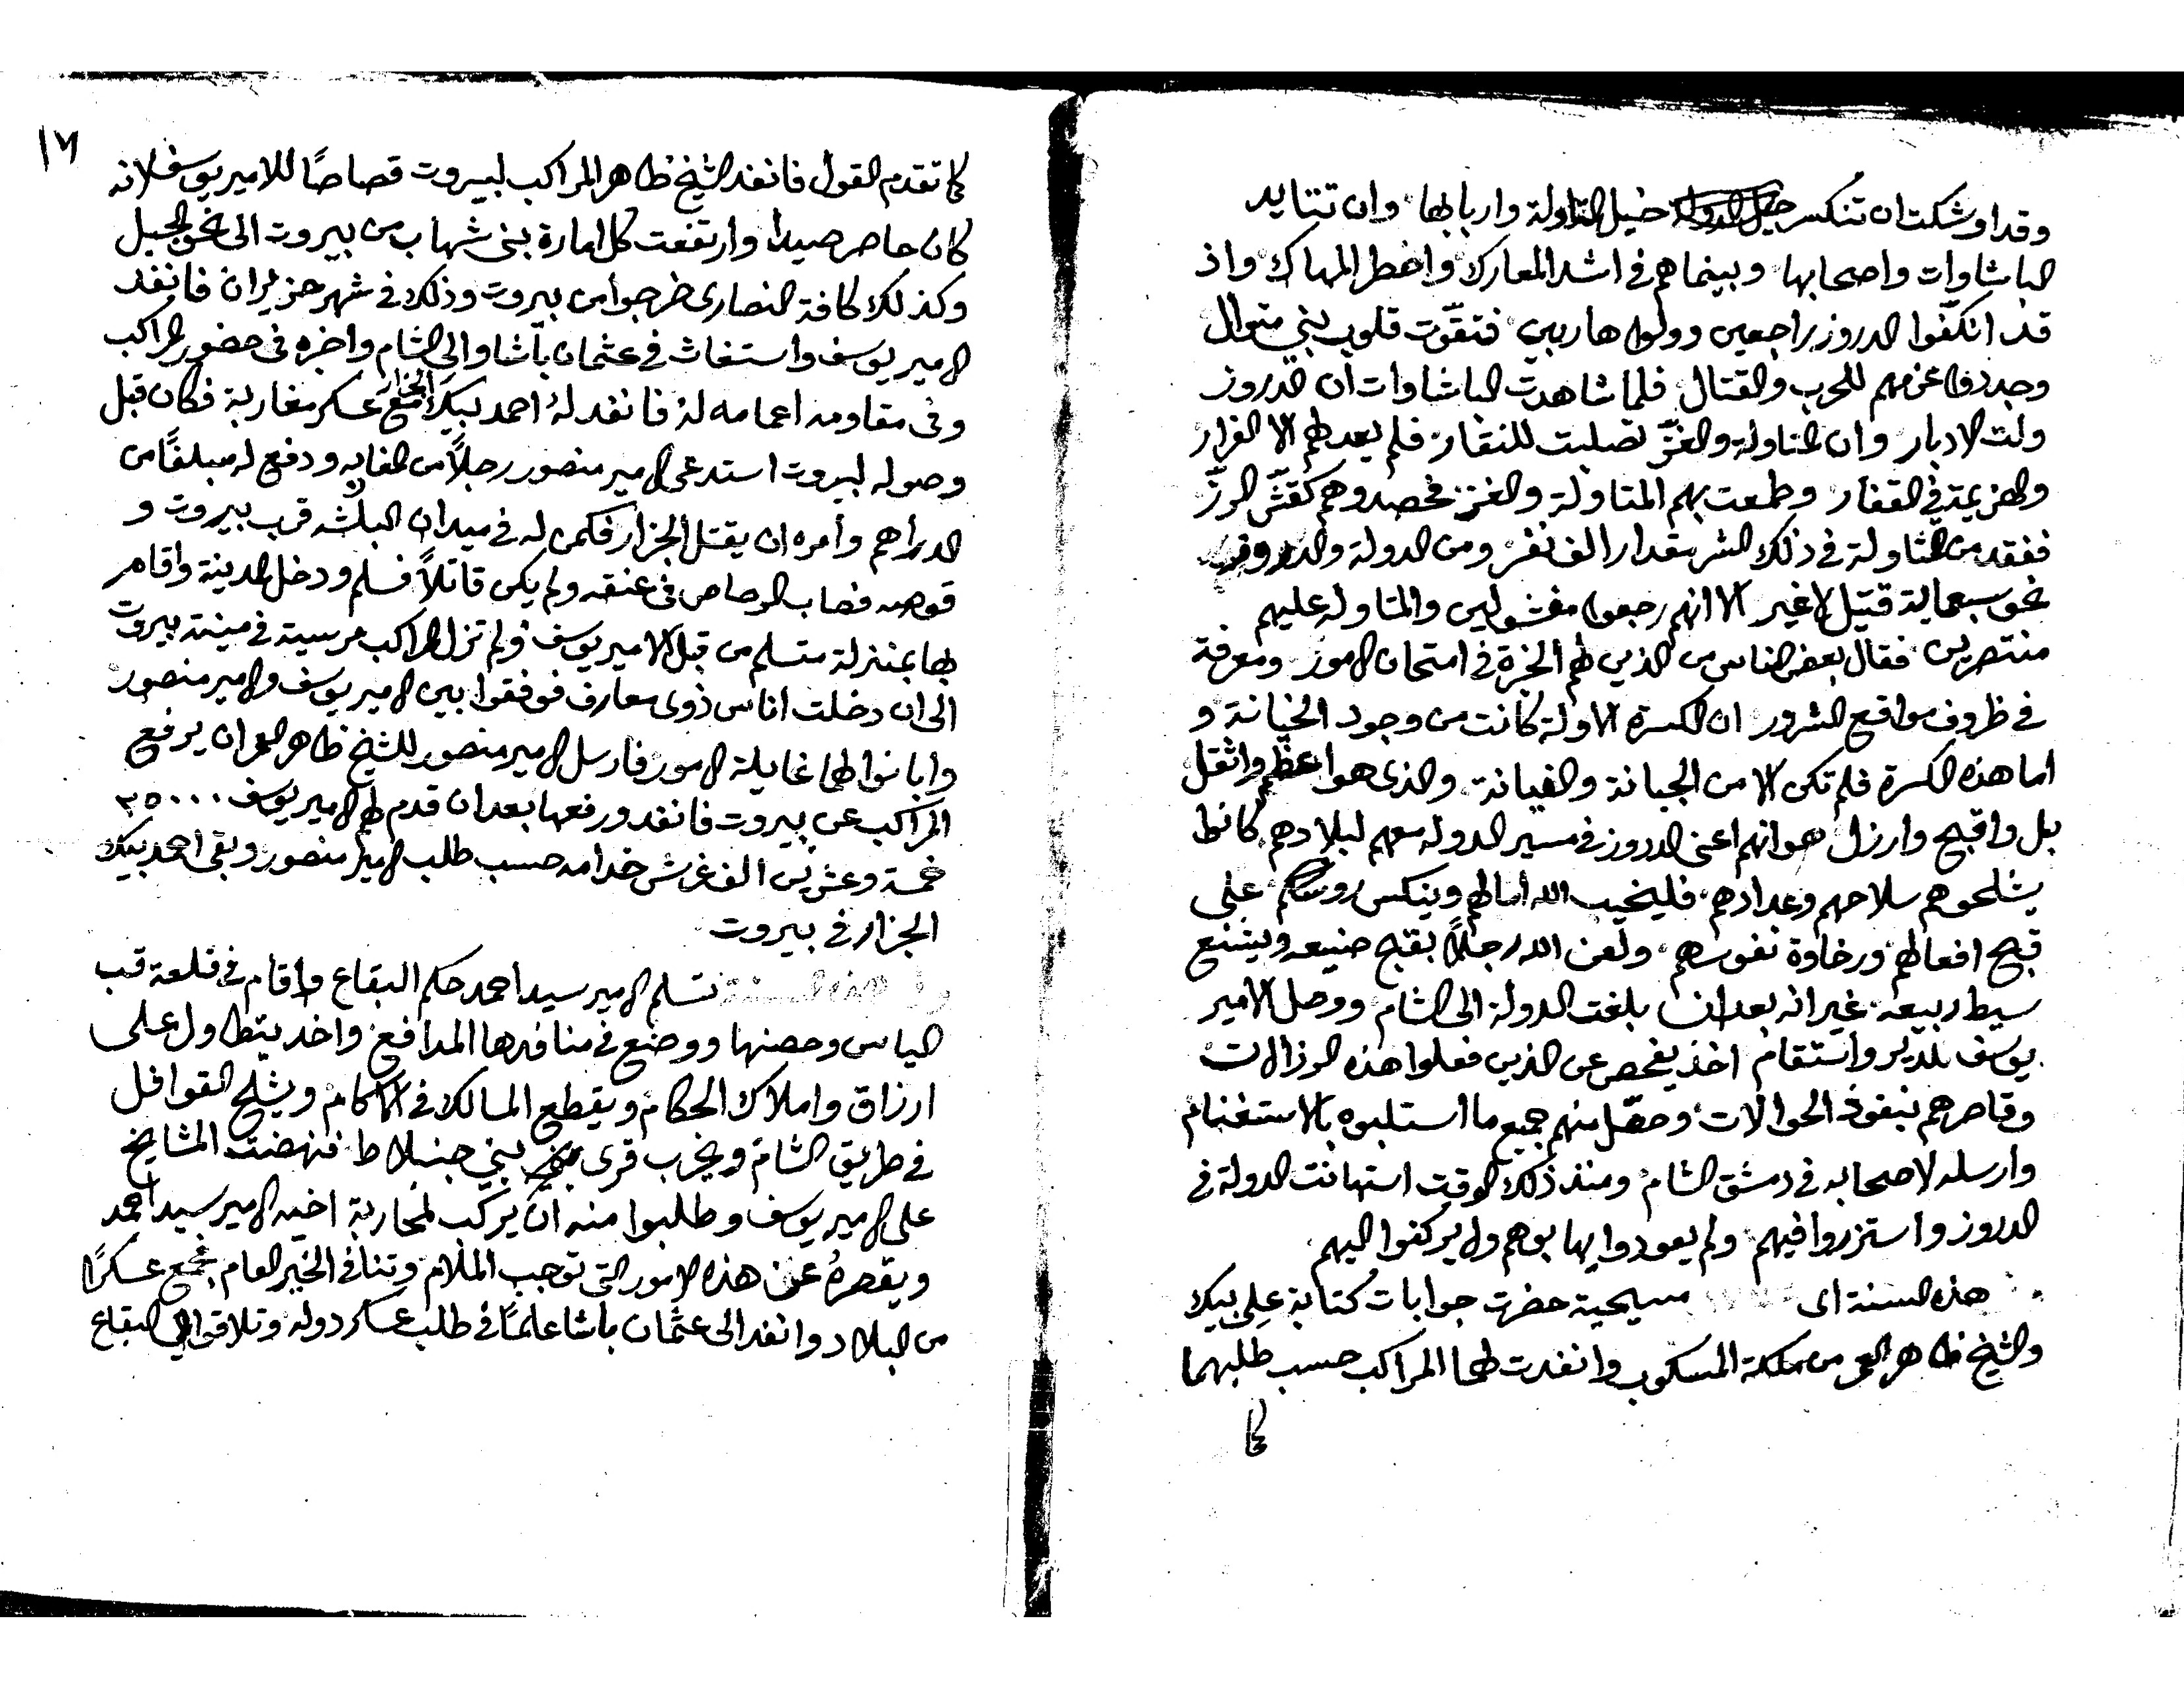 وقد اوشكت ان تنكسر خيل المتاولة واربابها وان تتايد
الباشاوات واصحابها وبينما هم في اشد المعارك واخطر المهالك واذ
قد انكفّوا الدروز راجعين وولوا هاربين فتقوّت قلوب بني متوال
وجددوا عزمهم للحرب والقتال فلما شاهدت الباشاوات ان الدروز
ولت الادبار وان المتاولة والغزّ تصلبت للنقار فلم يعد لهم الا الفرار
والهزيمة في القفار وطمعت بهم المتاولة والغز فحصدوهم كقشّ الرزّ
ففقد من المتاولة في ذلك الشر مقدار الف نفر ومن الدولة والدروز
نحو سبعماية قتيل لا غير الا انهم رجعوا مفشولين والمتاوله عليهم
منتصرين فقال بعض الناس من الذين لهم الخبرة في امتحان الامور ومعرفة
في ظروف مواقع الشرور ان الكسرة الاولة كانت من وجود الخيانة و
اما هذه الكسرة فلم تكن الا من الجبانة والغيانة والذي هو اعظم واثقل
بل واقبح وارزل هو انهم اعني الدروز في مسير الدوله معهم لبلادهم كانوا
يشلحوهم سلاحهم وعدادهم فليخيب الله امالهم وينكس روسهم على
قبح افعالهم ورخاوة نفوسهم ولعن الله رجلاً بقبح صنيعه ويشنع
سيط ربيعه غير انه بعد ان بلغت الدولة الى الشام ووصل الامير
يوسف للدير واستقام اخذ يفحص عن الذين فعلوا هذه الرزالات
وقاصرهم بنفوذ الحوالات وحصّل منهم جميع ما استلبوه بالاستغنام
وارسله لاصحابه في دمشق الشام ومنذ ذلك الوقت استهانت الدولة في
الدروز واستزروا فيهم ولم يعودوا يهابوهم ولا يركنوا اليهم
هذه السنة اى مسيحية حضرت جوابات كتابة علي بيك
والشيخ ظاهر العمر من مملكة المسكوب وانفدت لهما المراكب حسب طلبهما
كما
١٧
كما تقدم القول فانفد الشيخ ظاهر المراكب لبيروت قصاصًا للامير يوسف لانه
كان حاصر صيدا وارتفعت كل امارة بني شهاب من بيروت الى نحو الجبل
وكذلك كافة النصارى خرجوا من بيروت وذلك في شهر حزيران فانفد
الامير يوسف واستغاث في عثمان باشا والي الشام واخبره في حضور المراكب
وفي مقاومه اعمامه له فانفد لهُ احمد بيك الجزار مع عسكر مغاربة فكان قبل
وصوله لبيروت استدعى الامير منصور رجلاً من الغابه ودفع له مبلغًا من
الدراهم وأمره ان يقتل الجزار فكمن له في ميدان البلشه قرب بيروت و
قوصه فصاب الرصاص في عنقه ولم يكن قاتلاً فسلم ودخل المدينة واقام
بها بمنزلة متسلم من قبل الامير يوسف ولم تزل المراكب مرسية في مينة بيروت
الى ان دخلت اناس ذوي معارف فوفقوا بين الامير يوسف والامير منصور
وابانوا لهما غايلة الامور فارسل الامير منصور للشيخ ظاهر العمر ان يرفع
المراكب عن بيروت فانفد ورفعها بعد ان قدم لهم الامير يوسف ٢٥٠٠٠
خمسة وعشرين الف غرش خدامه حسب طلب الامير منصور وبقى احمد بيك
الجزار في بيروت
وفي هذه السنة تسلم الامير سيد احمد حكم البقاع واقام في قلعة قب
الياس وحصنها ووضع في منافدها المدافع واخد يتطاول على
ارزاق واملاك الحكام ويقطع المسالك في الاكام ويشلح القوافل
في طريق الشام ويخرب قرى بني جنبلاط فنهضت المشايخ
على الامير يوسف وطلبوا منه ان يركب لمحاربة اخيه الامير سيد احمد
ويقصرهُ عن هذه الامور التي توجب الملام وتنافي الخير العام فجمع عسكرًا
من البلاد وانفد الى عثمان باشا علمًا في طلب عسكر دوله وتلاقوا الى البقاع